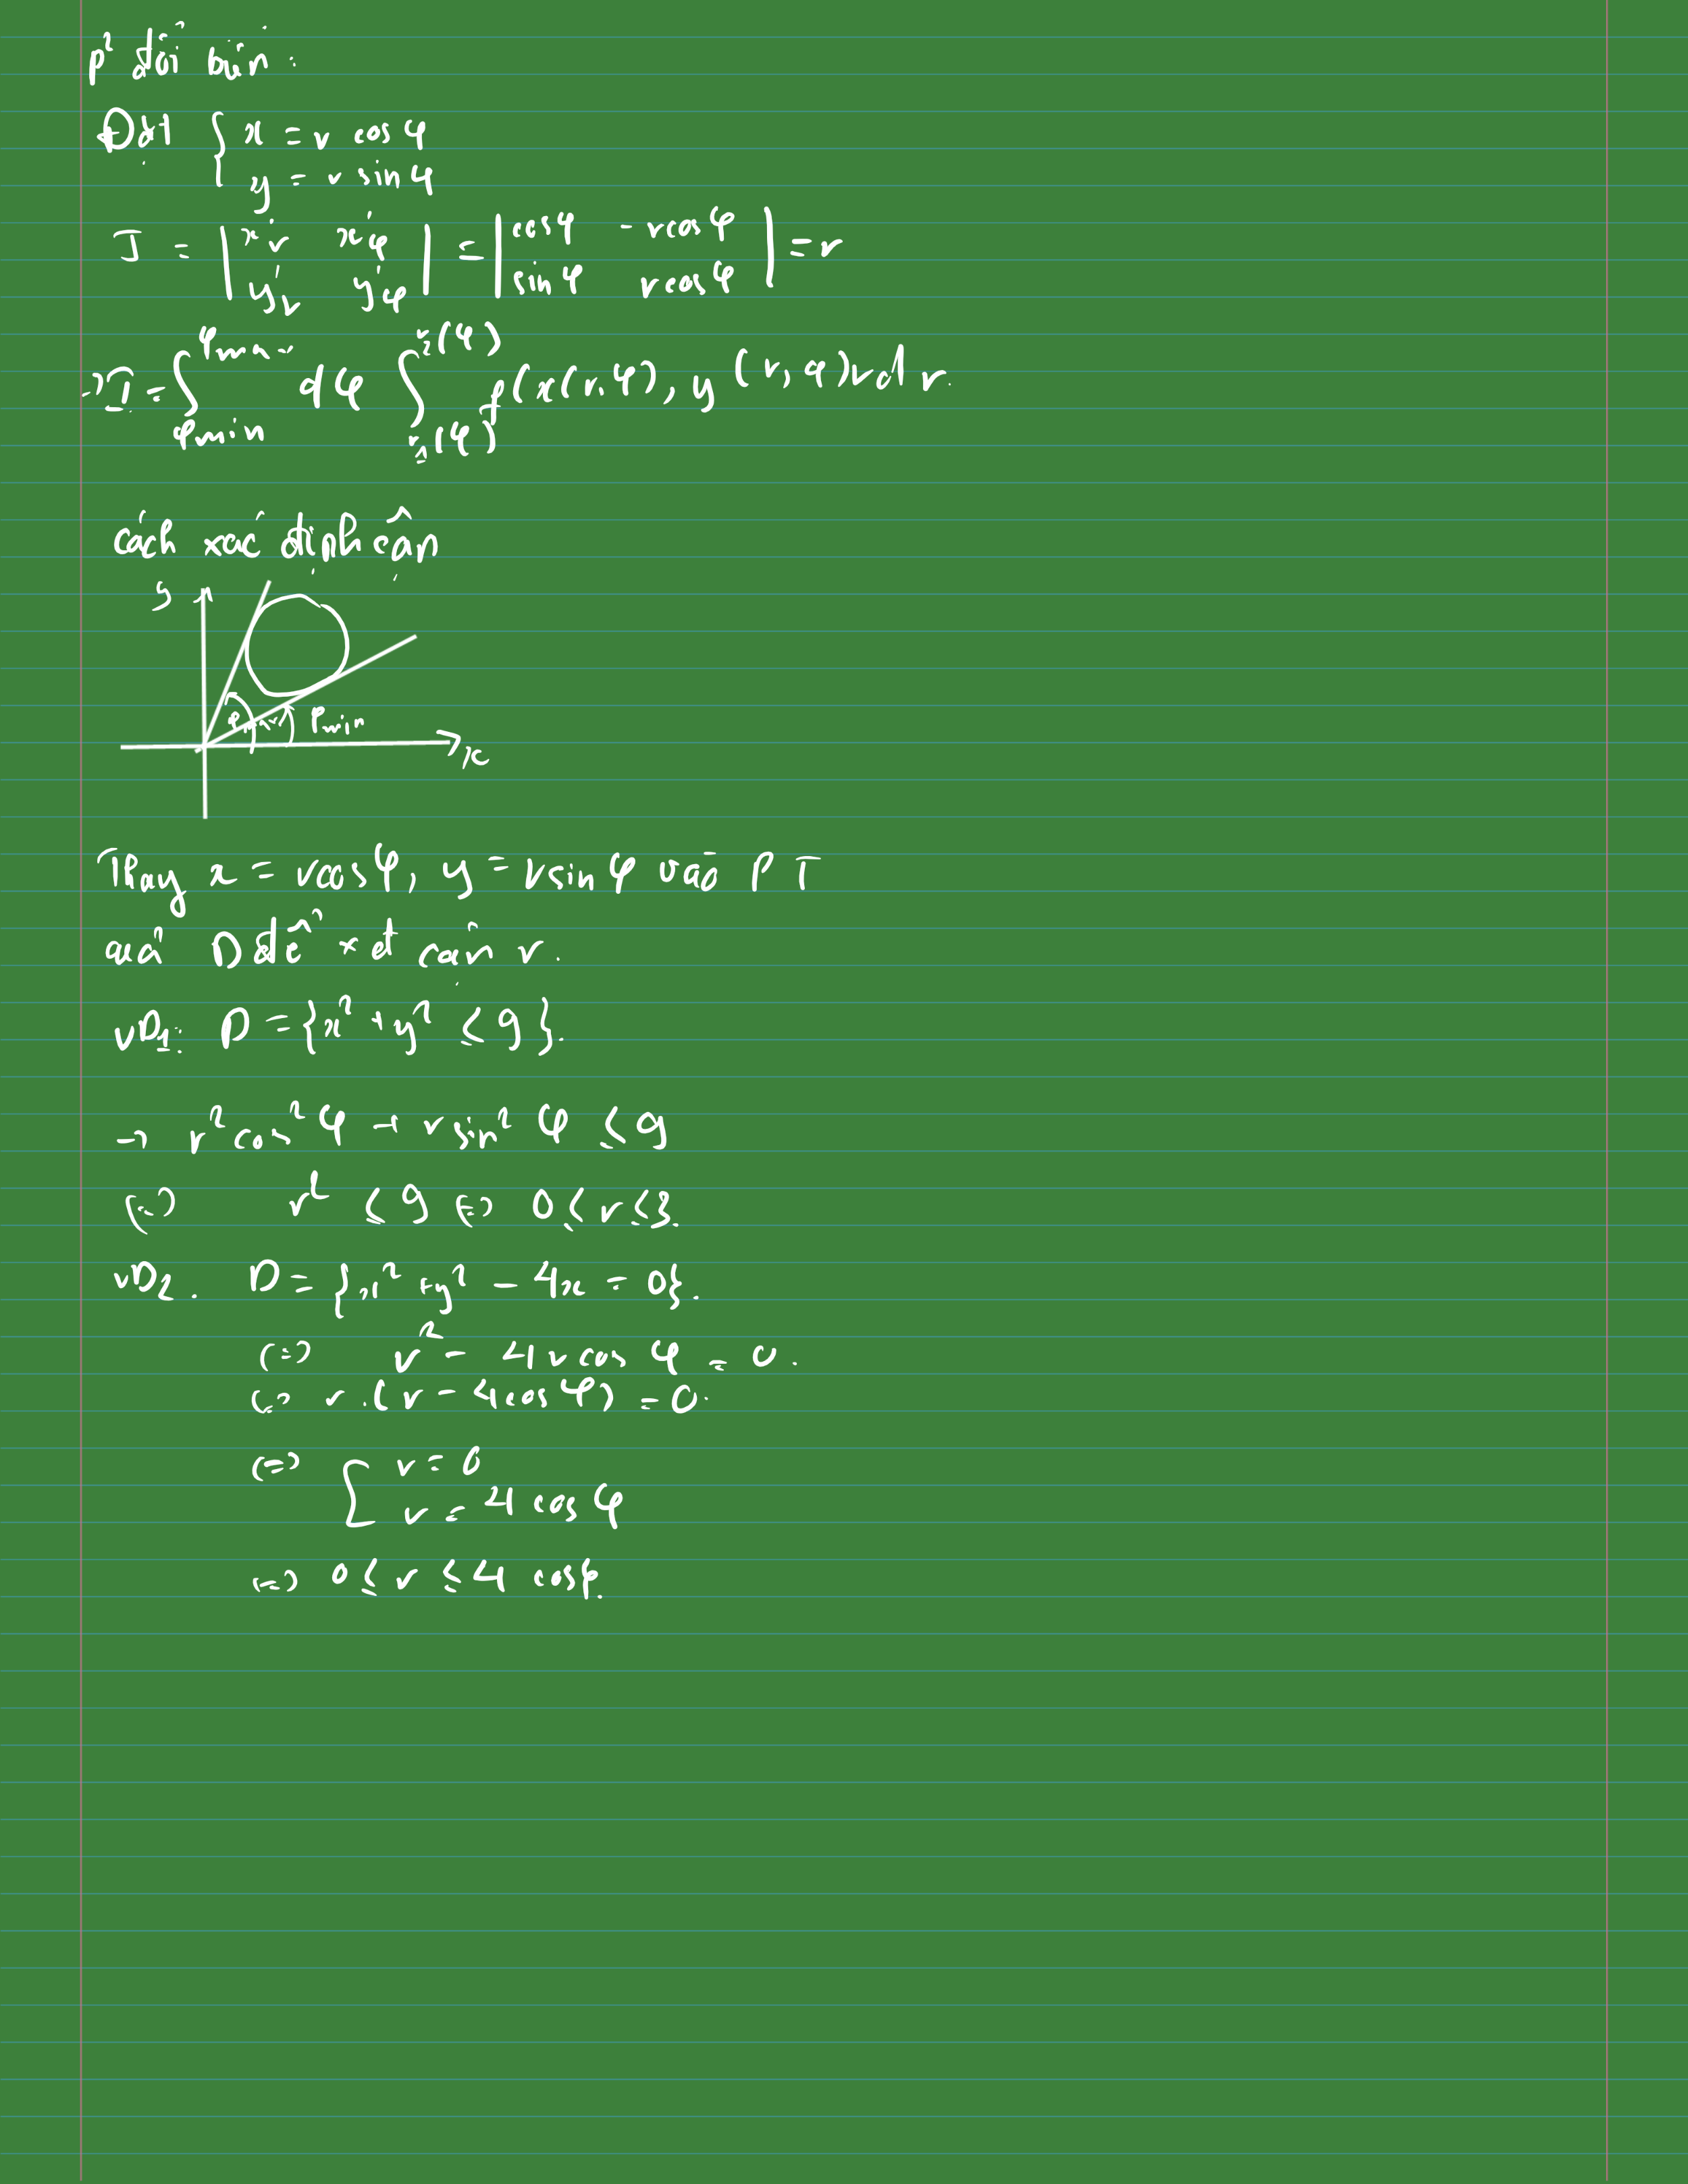 p² đổi biến:
Đặt { x = r cos φ
y = r sin φ
J = | x'r x'φ | = | cos φ - r cos φ | = r
y'r y'φ sin φ r cos φ
→ I = ∫ φmax φmin dφ ∫ r₂(φ) r₁(φ) f(x(r,φ), y(r,φ)) r dr.
cách xác định cận
y
φmax φmin
x
Thay x = r cos φ, y = r sin φ vào PT
của D để xét cận r.
VD1: D = {x² + y² ≤ 9}.
→ r² cos² φ + r sin² φ ≤ 9
(=) r² ≤ 9 (=) 0 ≤ r ≤ 3.
VD2. D = {x² + y² - 4x = 0}.
(=) r² - 4r cos φ = 0.
(=) r.(r - 4 cos φ) = 0.
(=) [ r = 0
r = 4 cos φ
=) 0 ≤ r ≤ 4 cos φ.